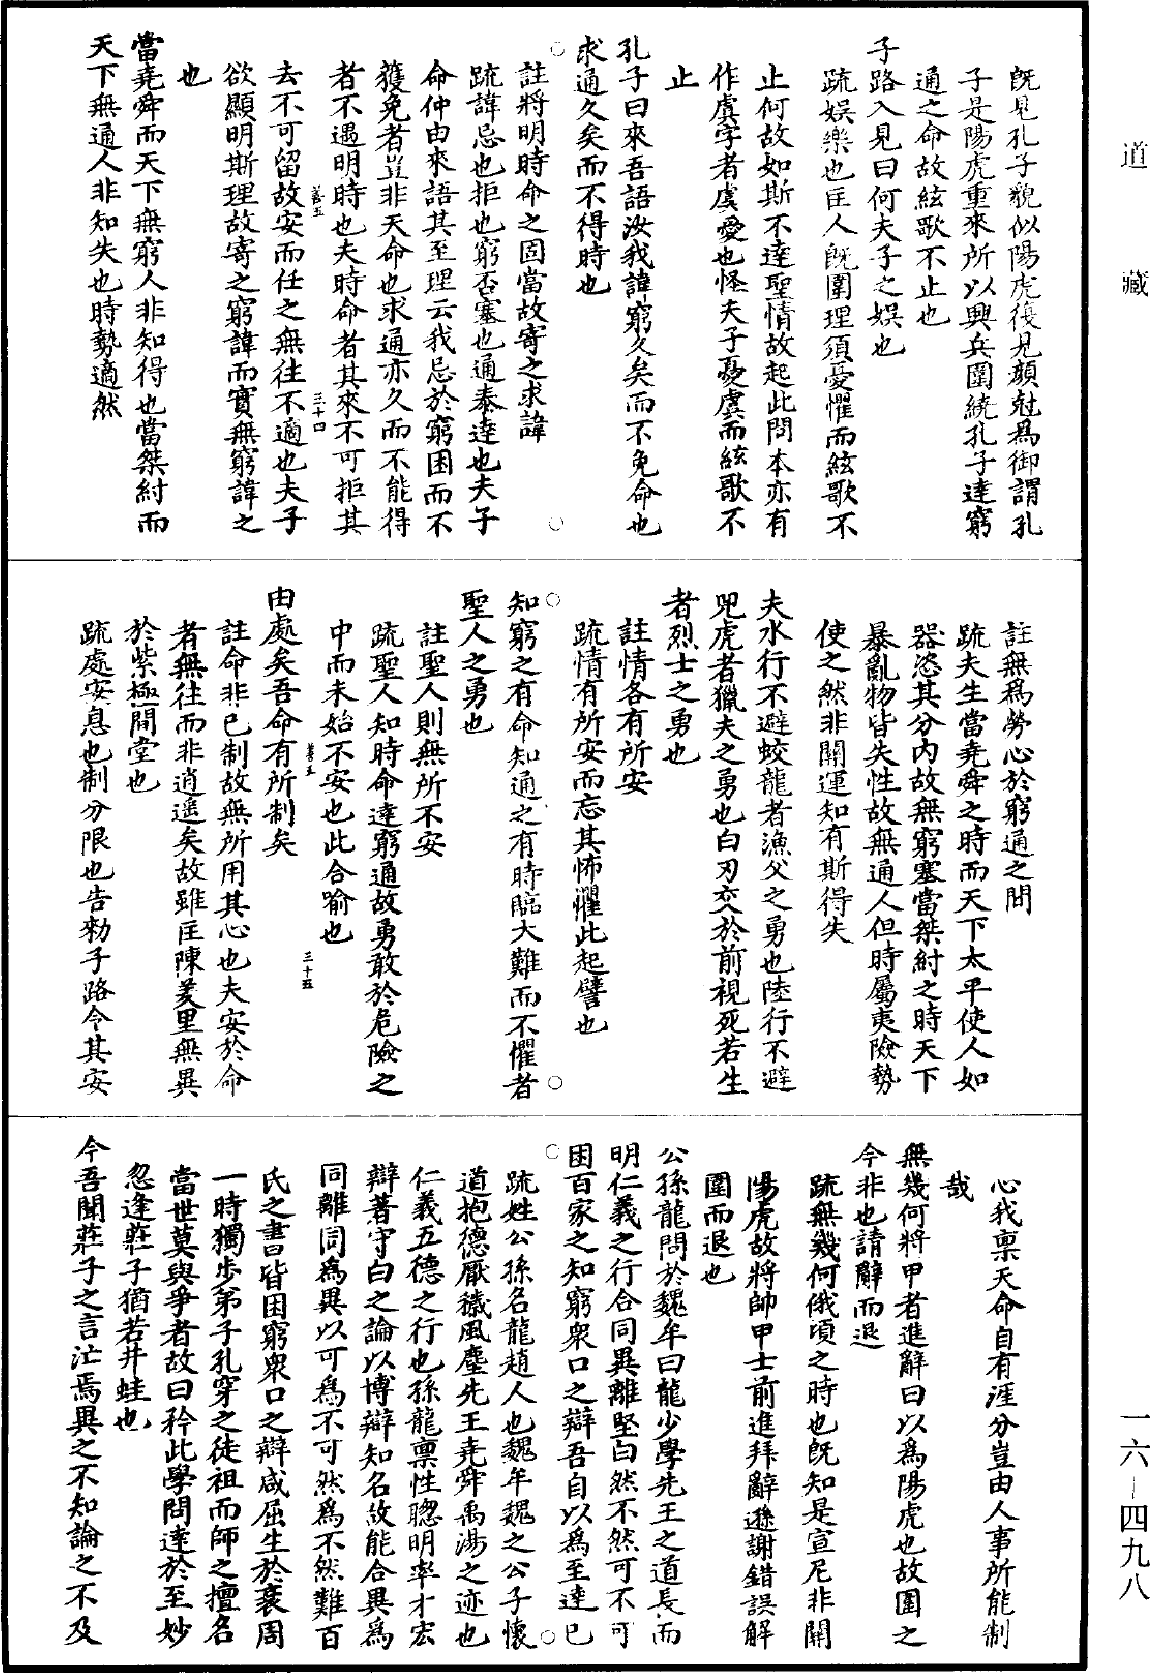 道藏
既見孔子貌似陽虎復見顏尅爲御謂孔
子是陽虎重來所以興兵圍繞孔子達窮
通之命故絃歌不止也
子路入見曰何夫子之娛也
疏娛樂也匡人既圍理須憂懼而絃歌不
止何故如斯不達聖情故起此問本亦有
作虞字者虞憂也怪夫子憂虞而絃歌不
止
孔子曰來吾語汝我諱窮久矣而不免命也
求通久矣而不得時也
註將明時命之固當故寄之求諱
疏諱忌也拒也窮否塞也通泰達也夫子
命仲由來語其至理云我忌於窮困而不
獲免者豈非天命也求通亦久而不能得
者不遇明時也夫時命者其來不可拒其
善五 三十四
去不可留故安而任之無往不適也夫子
欲顯明斯理故寄之窮諱而實無窮諱之
也
當堯舜而天下無窮人非知得也當桀紂而
天下無通人非知失也時勢適然
註無爲勞心於窮通之間
疏夫生當堯舜之時而天下太平使人如
器恣其分內故無窮塞當桀紂之時天下
暴亂物皆失性故無通人但時屬夷險勢
使之然非關運知有斯得失
夫水行不避蛟龍者漁父之勇也陸行不避
兕虎者獵夫之勇也白刃交於前視死若生
者烈士之勇也
註情各有所安
疏情有所安而忘其怖懼此起譬也
知窮之有命知通之有時臨大難而不懼者
聖人之勇也
註聖人則無所不安
疏聖人知時命達窮通故勇敢於危險之
中而未始不安也此合喻也
善五 三十五
由處矣吾命有所制矣
註命非己制故無所用其心也夫安於命
者無往而非逍遙矣故雖匡陳羑里無異
於紫極閒堂也
疏處安息也制分限也告勑子路令其安
心我禀天命自有涯分豈由人事所能制
哉
無幾何將甲者進辭曰以爲陽虎也故圍之
今非也請辭而退
疏無幾何俄頃之時也既知是宣尼非關
陽虎故將帥甲士前進拜辭遜謝錯誤解
圍而退也
公孫龍問於魏牟曰龍少學先王之道長而
明仁義之行合同異離堅白然不然可不可
困百家之知窮衆口之辯吾自以爲至達已
疏姓公孫名龍趙人也魏牟魏之公子懷
道抱德厭穢風塵先王堯舜禹湯之迹也
仁義五德之行也孫龍禀性聰明率才宏
辯著守白之論以博辯知名故能合異爲
同離同爲異以可爲不可然爲不然難百
氏之書皆困窮衆口之辯咸屈生於衰周
一時獨步弟子孔穿之徒祖而師之擅名
當世莫與爭者故曰矜此學問達於至妙
忽逢莊子猶若井蛙也
今吾聞莊子之言汒焉異之不知論之不及
一六—四九八